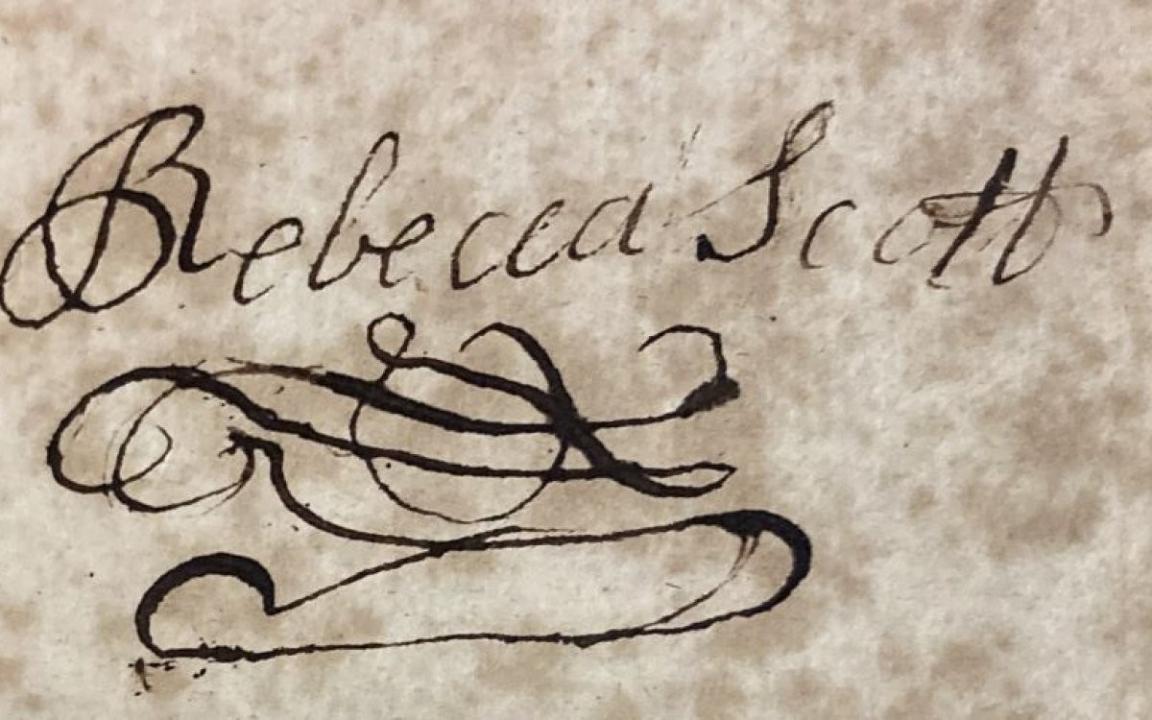 Rebecca Scott